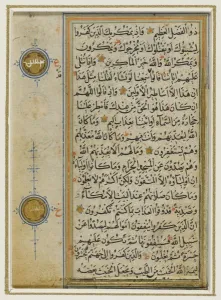 ذو الفضل العظيم واذ يمكر بك الذين كفروا
ليثبتوك او يقتلوك او يخرجوك ويمكرون
ويمكر الله والله خير الماكرين واذا تتلى
عليهم اياتنا قالوا قد سمعنا لو نشاء لقلنا مثل هذا
ان هذا الا اساطير الاولين واذ قالوا اللهم
ان كان هذا هو الحق من عندك فامطر علينا
حجارة من السماء او ائتنا بعذاب اليم وما كان
الله ليعذبهم وانت فيهم وما كان الله معذبهم
وهم يستغفرون وما لهم الا يعذبهم الله
وهم يصدون عن المسجد الحرام وما كانوا اولياءه
ان اولياؤه الا المتقون ولكن اكثرهم لا يعلمون
وما كان صلاتهم عند البيت الا مكاء
وتصدية فذوقوا العذاب بما كنتم تكفرون
ان الذين كفروا ينفقون اموالهم ليصدوا عن
سبيل الله فسينفقونها ثم تكون عليهم
حسرة ثم يغلبون والذين كفروا الى جهنم يحشرون
ليميز الله الخبيث من الطيب ويجعل الخبيث بعضه